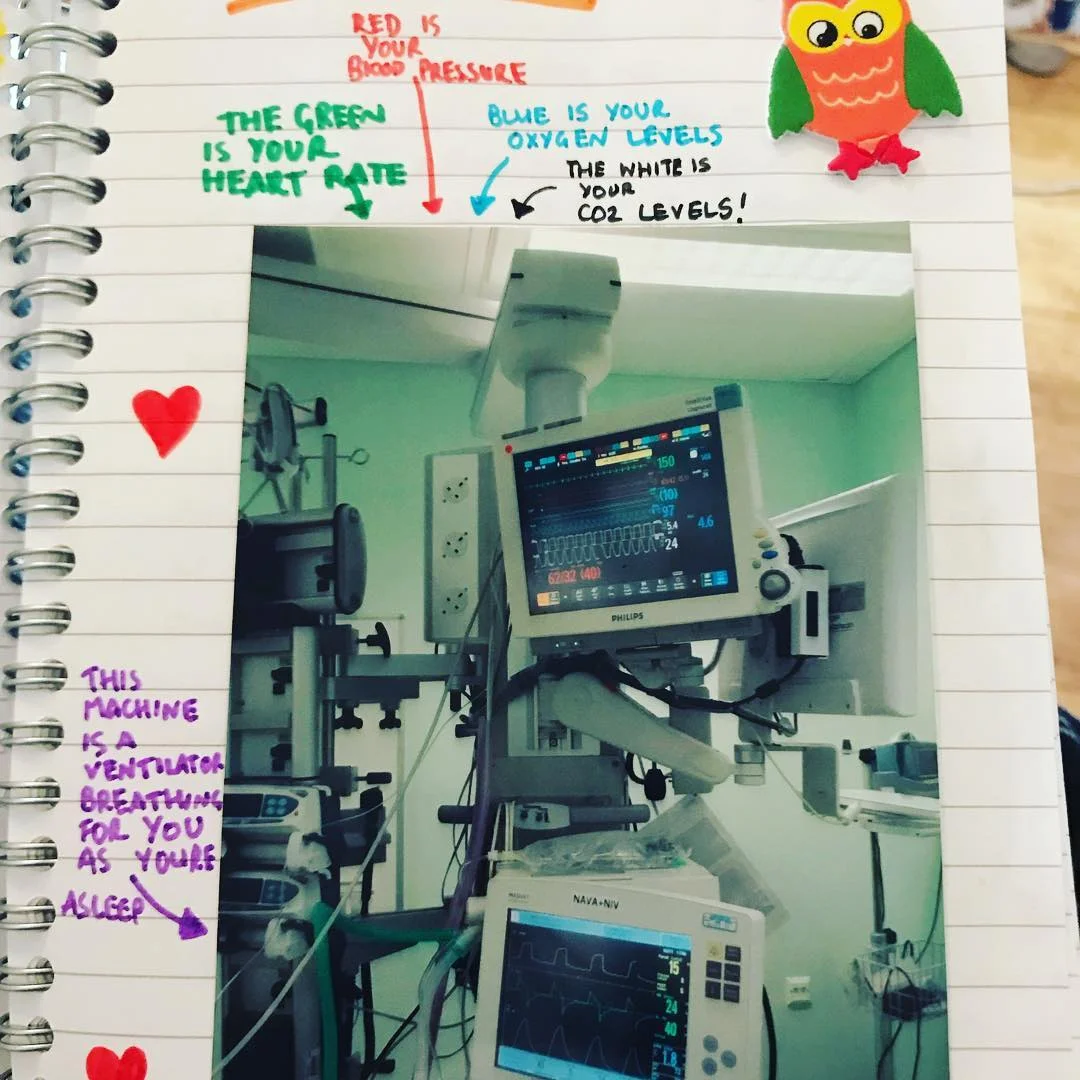 RED IS
YOUR
BLOOD PRESSURE
THE GREEN
IS YOUR
HEART RATE
BLUE IS YOUR
OXYGEN LEVELS
THE WHITE IS
YOUR
CO2 LEVELS!
150
(10)
97
5.4
4.6
24
62/32 (40)
PHILIPS
THIS
MACHINE
IS A
VENTILATOR
BREATHING
FOR YOU
AS YOURE
ASLEEP
MAQUET
NAVA+NIV
15
24
40
1.8